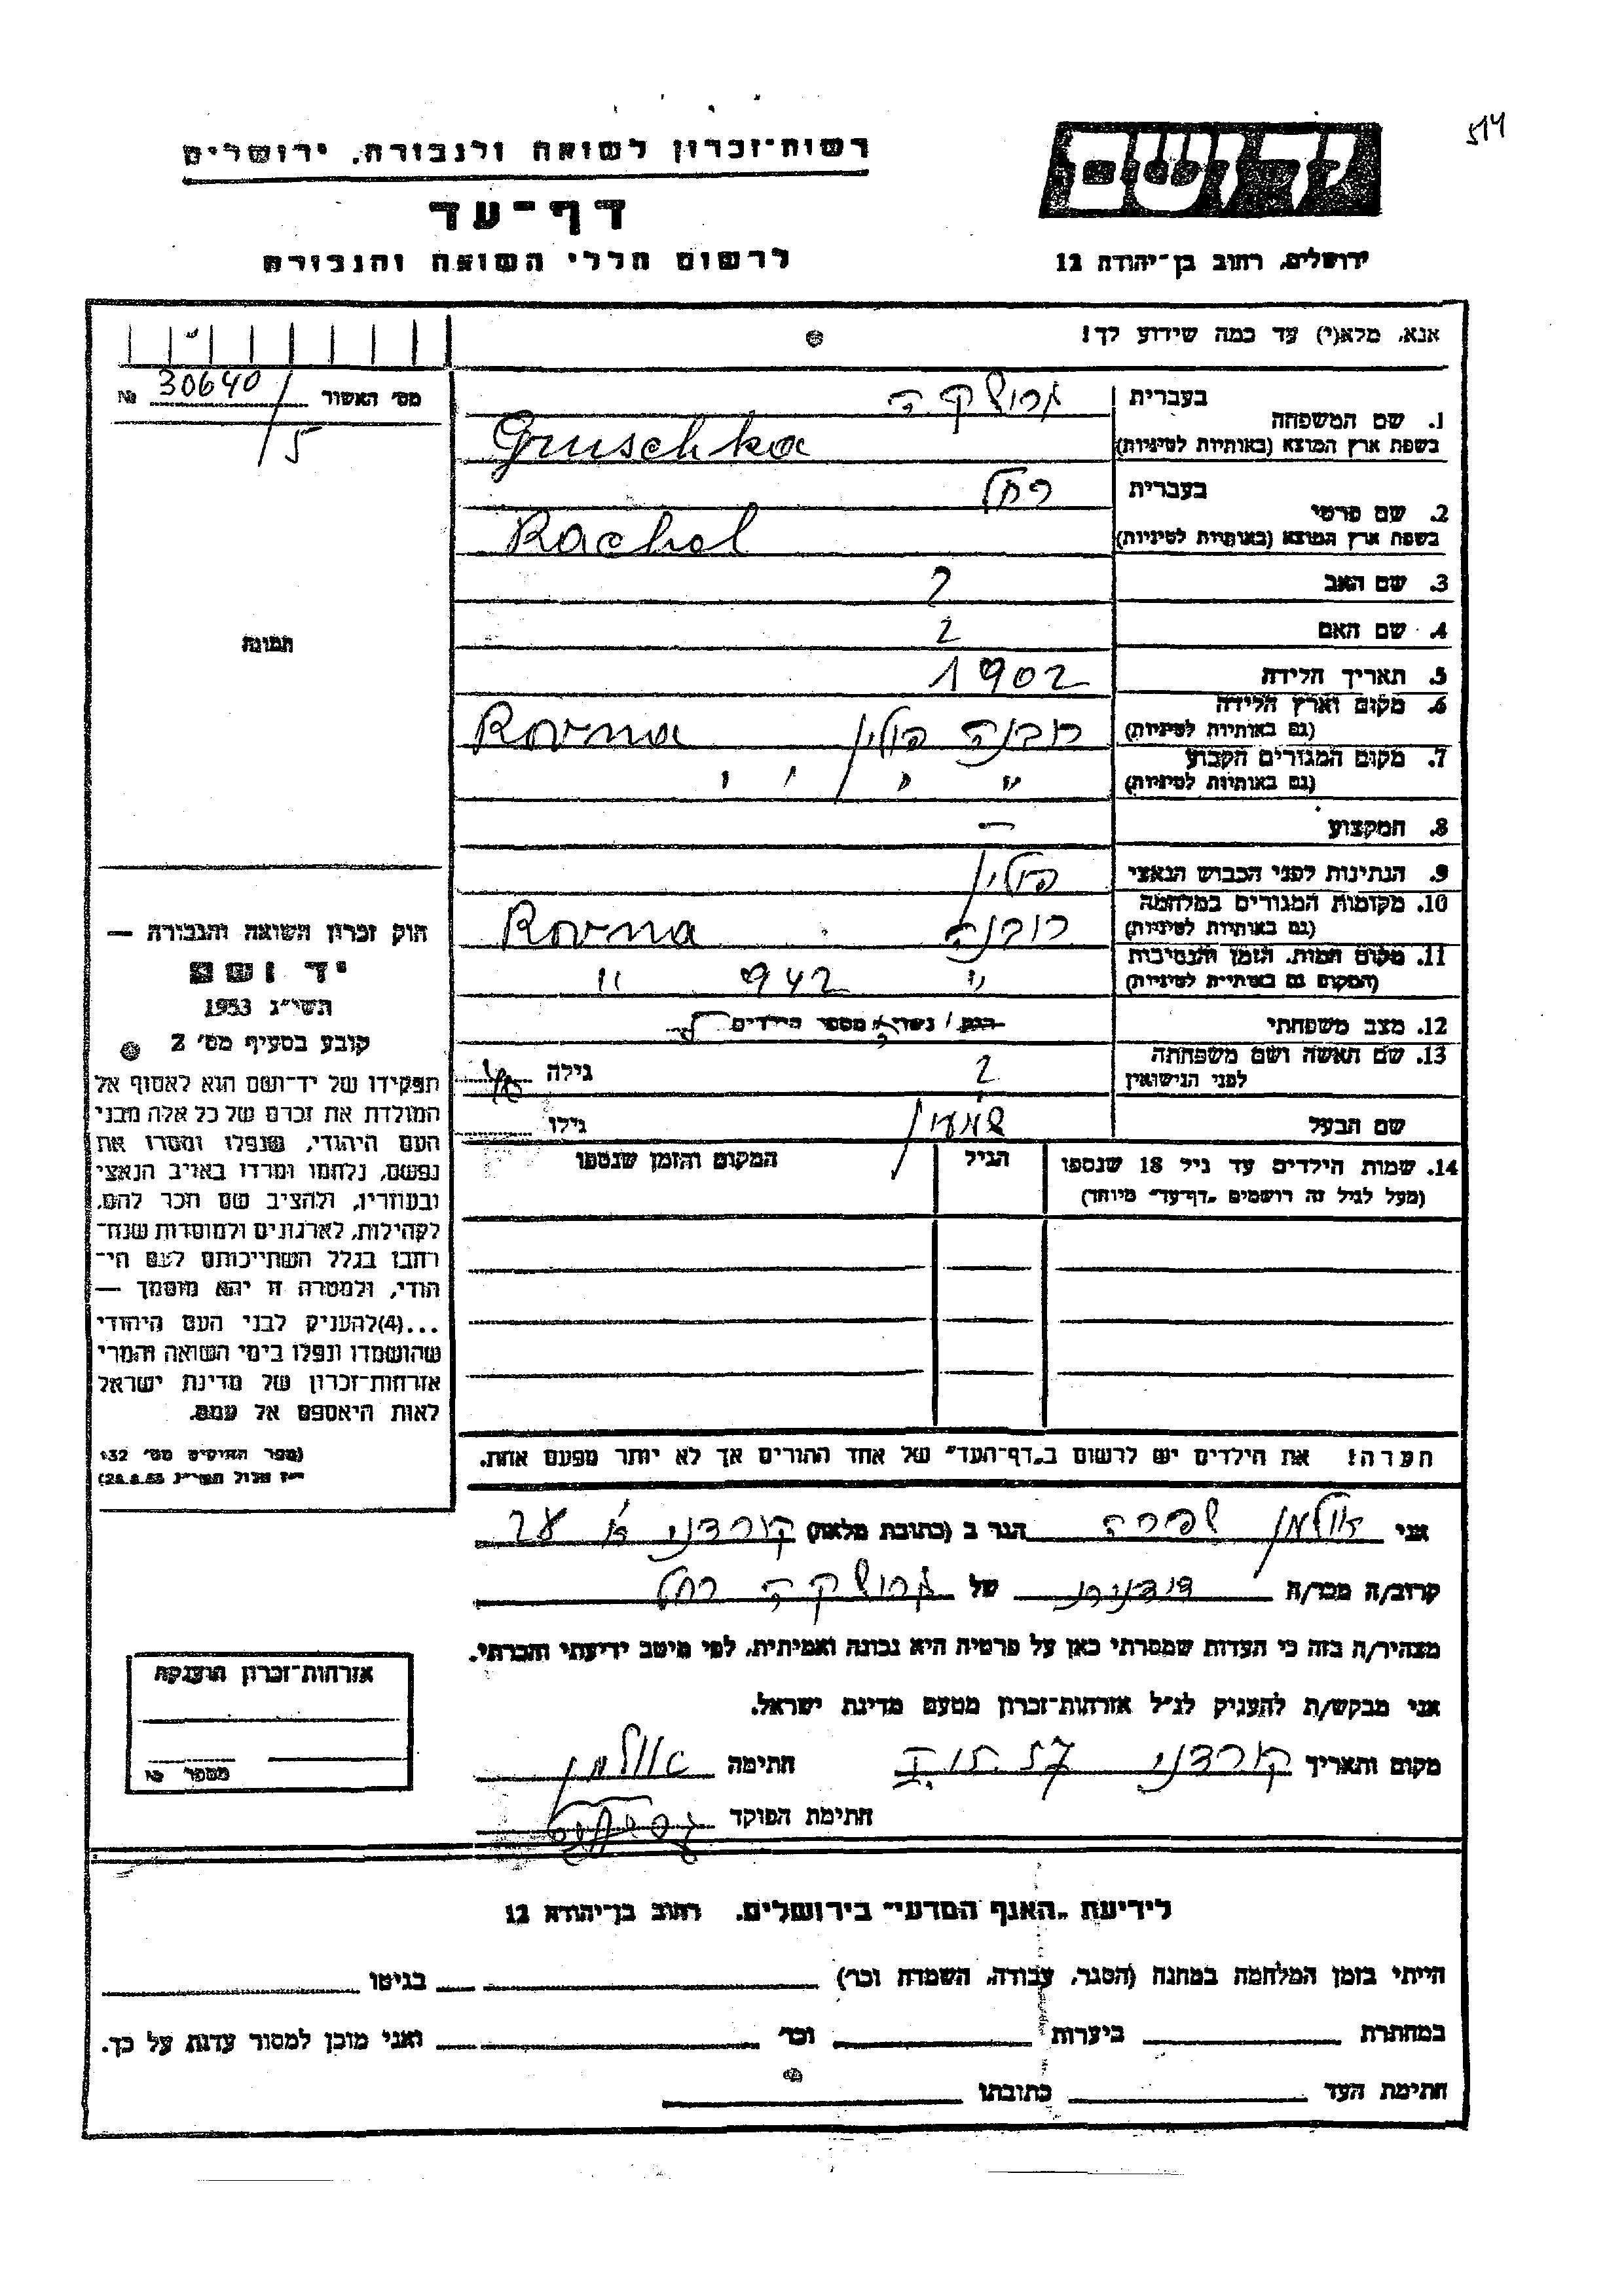 רשות-זכרון לשואה ולגבורה, ירושלים
דף-עד
לרשום חללי השואה והגבורה
יד ושם
ירושלים, רחוב בן-יהודה 12
אנא, מלא(י) עד כמה שידוע לך!
מס' האשור № 30640/5
תמונה
1. שם המשפחה
בעברית גרושקה
בשפת ארץ המוצא (באותיות לטיניות) Gruschka
2. שם פרטי
בעברית רחל
בשפת ארץ המוצא (באותיות לטיניות) Rachel
3. שם האב ?
4. שם האם ?
5. תאריך הלידה 1902
6. מקום וארץ הלידה רובנה פולין Rovna
(גם באותיות לטיניות)
7. מקום המגורים הקבוע " " " "
(גם באותיות לטיניות)
8. המקצוע —
9. הנתינות לפני הכבוש הנאצי פולין
10. מקומות המגורים במלחמה רובנה Rovna
(גם באותיות לטיניות)
11. מקום המות, הזמן והנסיבות " 942 "
(המקום גם באותיות לטיניות)
12. מצב משפחתי רוק / נשוי/אה מספר הילדים
13. שם האשה ושם משפחתה ? גילה 40
לפני הנישואין
שם הבעל שמעון גילו
14. שמות הילדים עד גיל 18 שנספו הגיל המקום והזמן שנספו
(מעל לגיל זה רושמים "דף-עד" מיוחד)
הערה! את הילדים יש לרשום ב"דף-העד" של אחד ההורים אך לא יותר מפעם אחת.
חוק זכרון השואה והגבורה —
יד ושם
תשי"ג 1953
קובע בסעיף מס' 2
תפקידו של יד-ושם הוא לאסוף אל
המולדת את זכרם של כל אלה מבני
העם היהודי, שנפלו ומסרו את
נפשם, נלחמו ומרדו באויב הנאצי
ובעוזריו, ולהציב שם וזכר להם,
לקהילות, לארגונים ולמוסדות שנח-
רבו בגלל השתייכותם לעם הי-
הודי, ולמטרה זו יהא מוסמך —
...(4)להעניק לבני העם היהודי
שהושמדו ונפלו בימי השואה והמרי
אזרחות-זכרון של מדינת ישראל
לאות היאספם אל עמם.
(ספר החוקים מס' 132
י"ז אלול תשי"ג 28.8.53)
אני אולמן שפרה הגר ב (כתובת מלאה) קורדני א'
קרוב/ה מכר/ה ידידות של גרושקה רחל
מצהיר/ה בזה כי העדות שמסרתי כאן על פרטיה היא נכונה ואמיתית, לפי מיטב ידיעתי והכרתי.
אני מבקש/ת להעניק לנ"ל אזרחות-זכרון מטעם מדינת ישראל.
מקום ותאריך קורדני חתימה אולמן
חתימת הפוקד
אזרחות-זכרון הוענקה
מספר №
לידיעת "האגף המדעי" בירושלים, רחוב בן-יהודה 12
הייתי בזמן המלחמה במחנה (הסגר, עבודה, השמדה וכו') בגיטו
במחתרת ביערות וכו' ואני מוכן למסור עדות על כך.
חתימת העד כתובתו